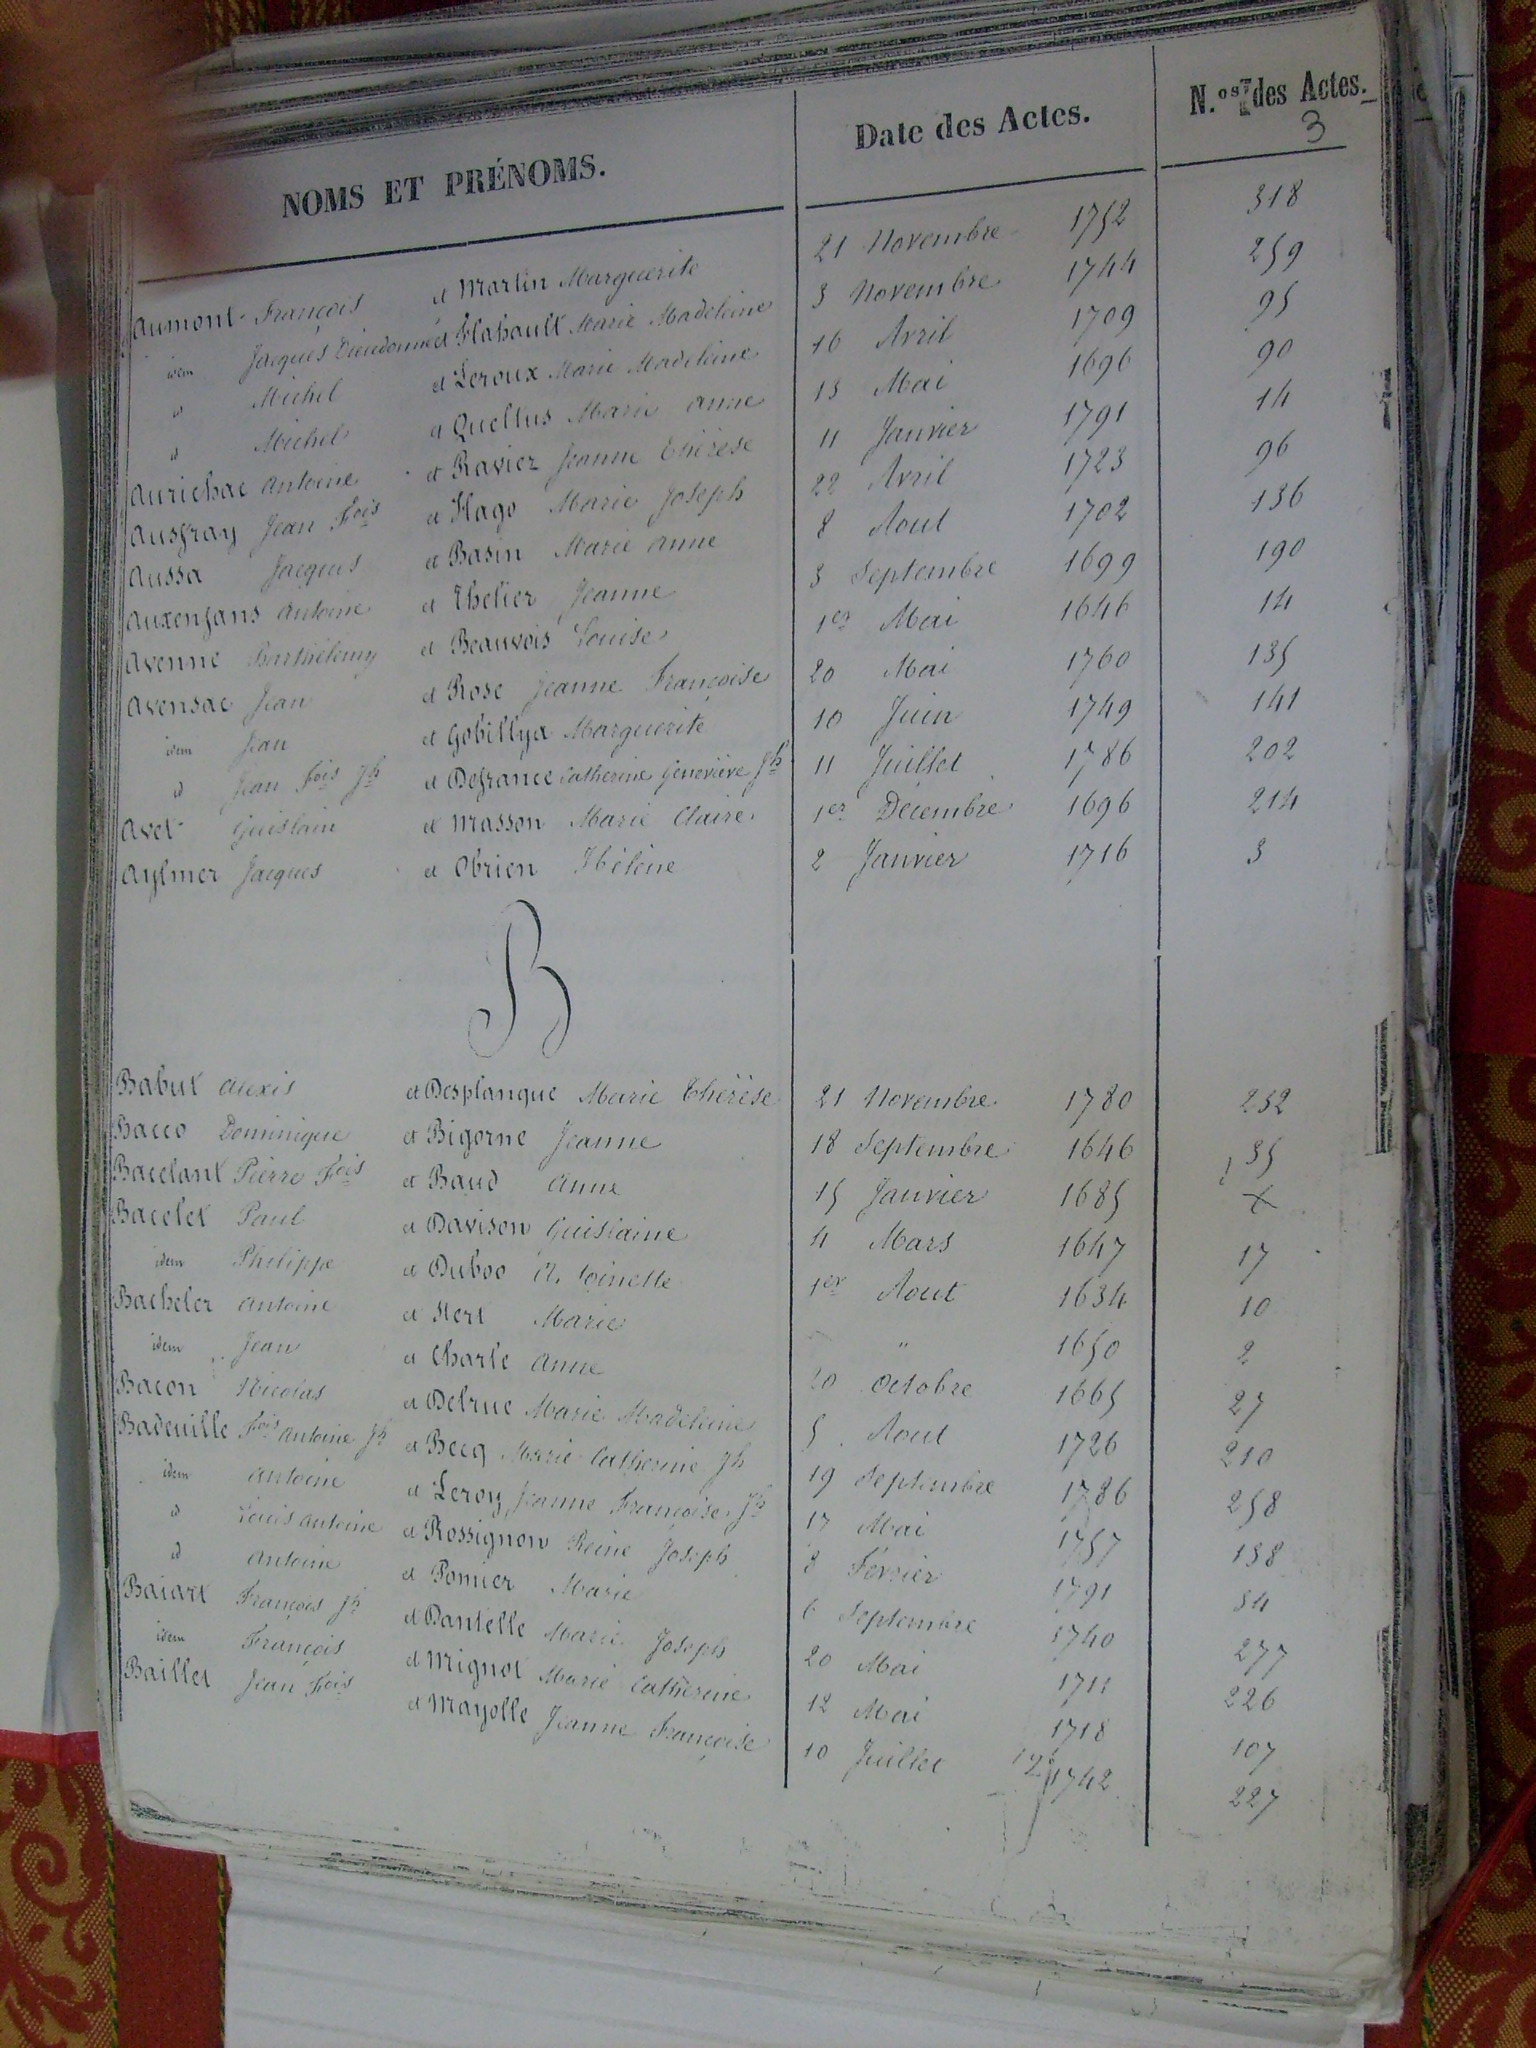 NOMS ET PRÉNOMS. Date des Actes. N.os des Actes.
3
Aumont François et Martin Marguerite 21 Novembre 1752 318
idem Jacques Dieudonné et Flahault Marie Madeleine 3 Novembre 1744 259
d Michel et Leroux Marie Madeleine 16 Avril 1709 95
d Michel et Quellus Marie Anne 13 Mai 1696 90
Aurichac Antoine et Ravier Jeanne Thérèse 11 Janvier 1791 14
Ausfray Jean Fois et Hago Marie Joseph 22 Avril 1723 96
Aussa Jacques et Basin Marie Anne 8 Aout 1702 136
Auxenfans Antoine et Thelier Jeanne 3 Septembre 1699 190
Avenne Barthélemy et Beauvois Louise 1er Mai 1646 14
Avensac Jean et Rose Jeanne Françoise 20 Mai 1760 135
idem Jean et Gobillya Marguerite 10 Juin 1749 141
d Jean Fois Jh et Defrance Catherine Geneviève Jh 11 Juillet 1786 202
Avet Guislain et Masson Marie Claire 1er Décembre 1696 214
Aylmer Jacques et Obrien Hélène 2 Janvier 1716 3
B
Babut Alexis et Desplanque Marie Thérèse 21 Novembre 1780 252
Bacco Dominique et Bigorne Jeanne 18 Septembre 1646 35
Bacelant Pierre Fois et Baud Anne 15 Janvier 1685 x
Bacelet Paul et Davison Guislaine 4 Mars 1647 17
idem Philippe et Duboo 1er Aout 1634 10
Bacheler Antoine et Hert Marie " 1650 2
idem Jean et Charle Anne 20 Octobre 1665 27
Bacon Nicolas et Delrue Marie Madeleine 5 Aout 1726 210
Badeuille Fois Antoine Jh et Becq Marie Catherine Jh 19 Septembre 1786 258
idem Antoine et Leroy Jeanne Françoise Jh 17 Mai 1757 138
d Louis Antoine et Rossignon Reine Joseph 3 Février 1791 34
d Antoine et Pomier Marie 6 Septembre 1740 277
Baiart François Jh et Dantelle Marie Joseph 20 Mai 1711 226
idem François et Mignot Marie Catherine 12 Mai 1718 107
Baillet Jean Fois et Mayolle Jeanne Françoise 10 Juillet 1742 227